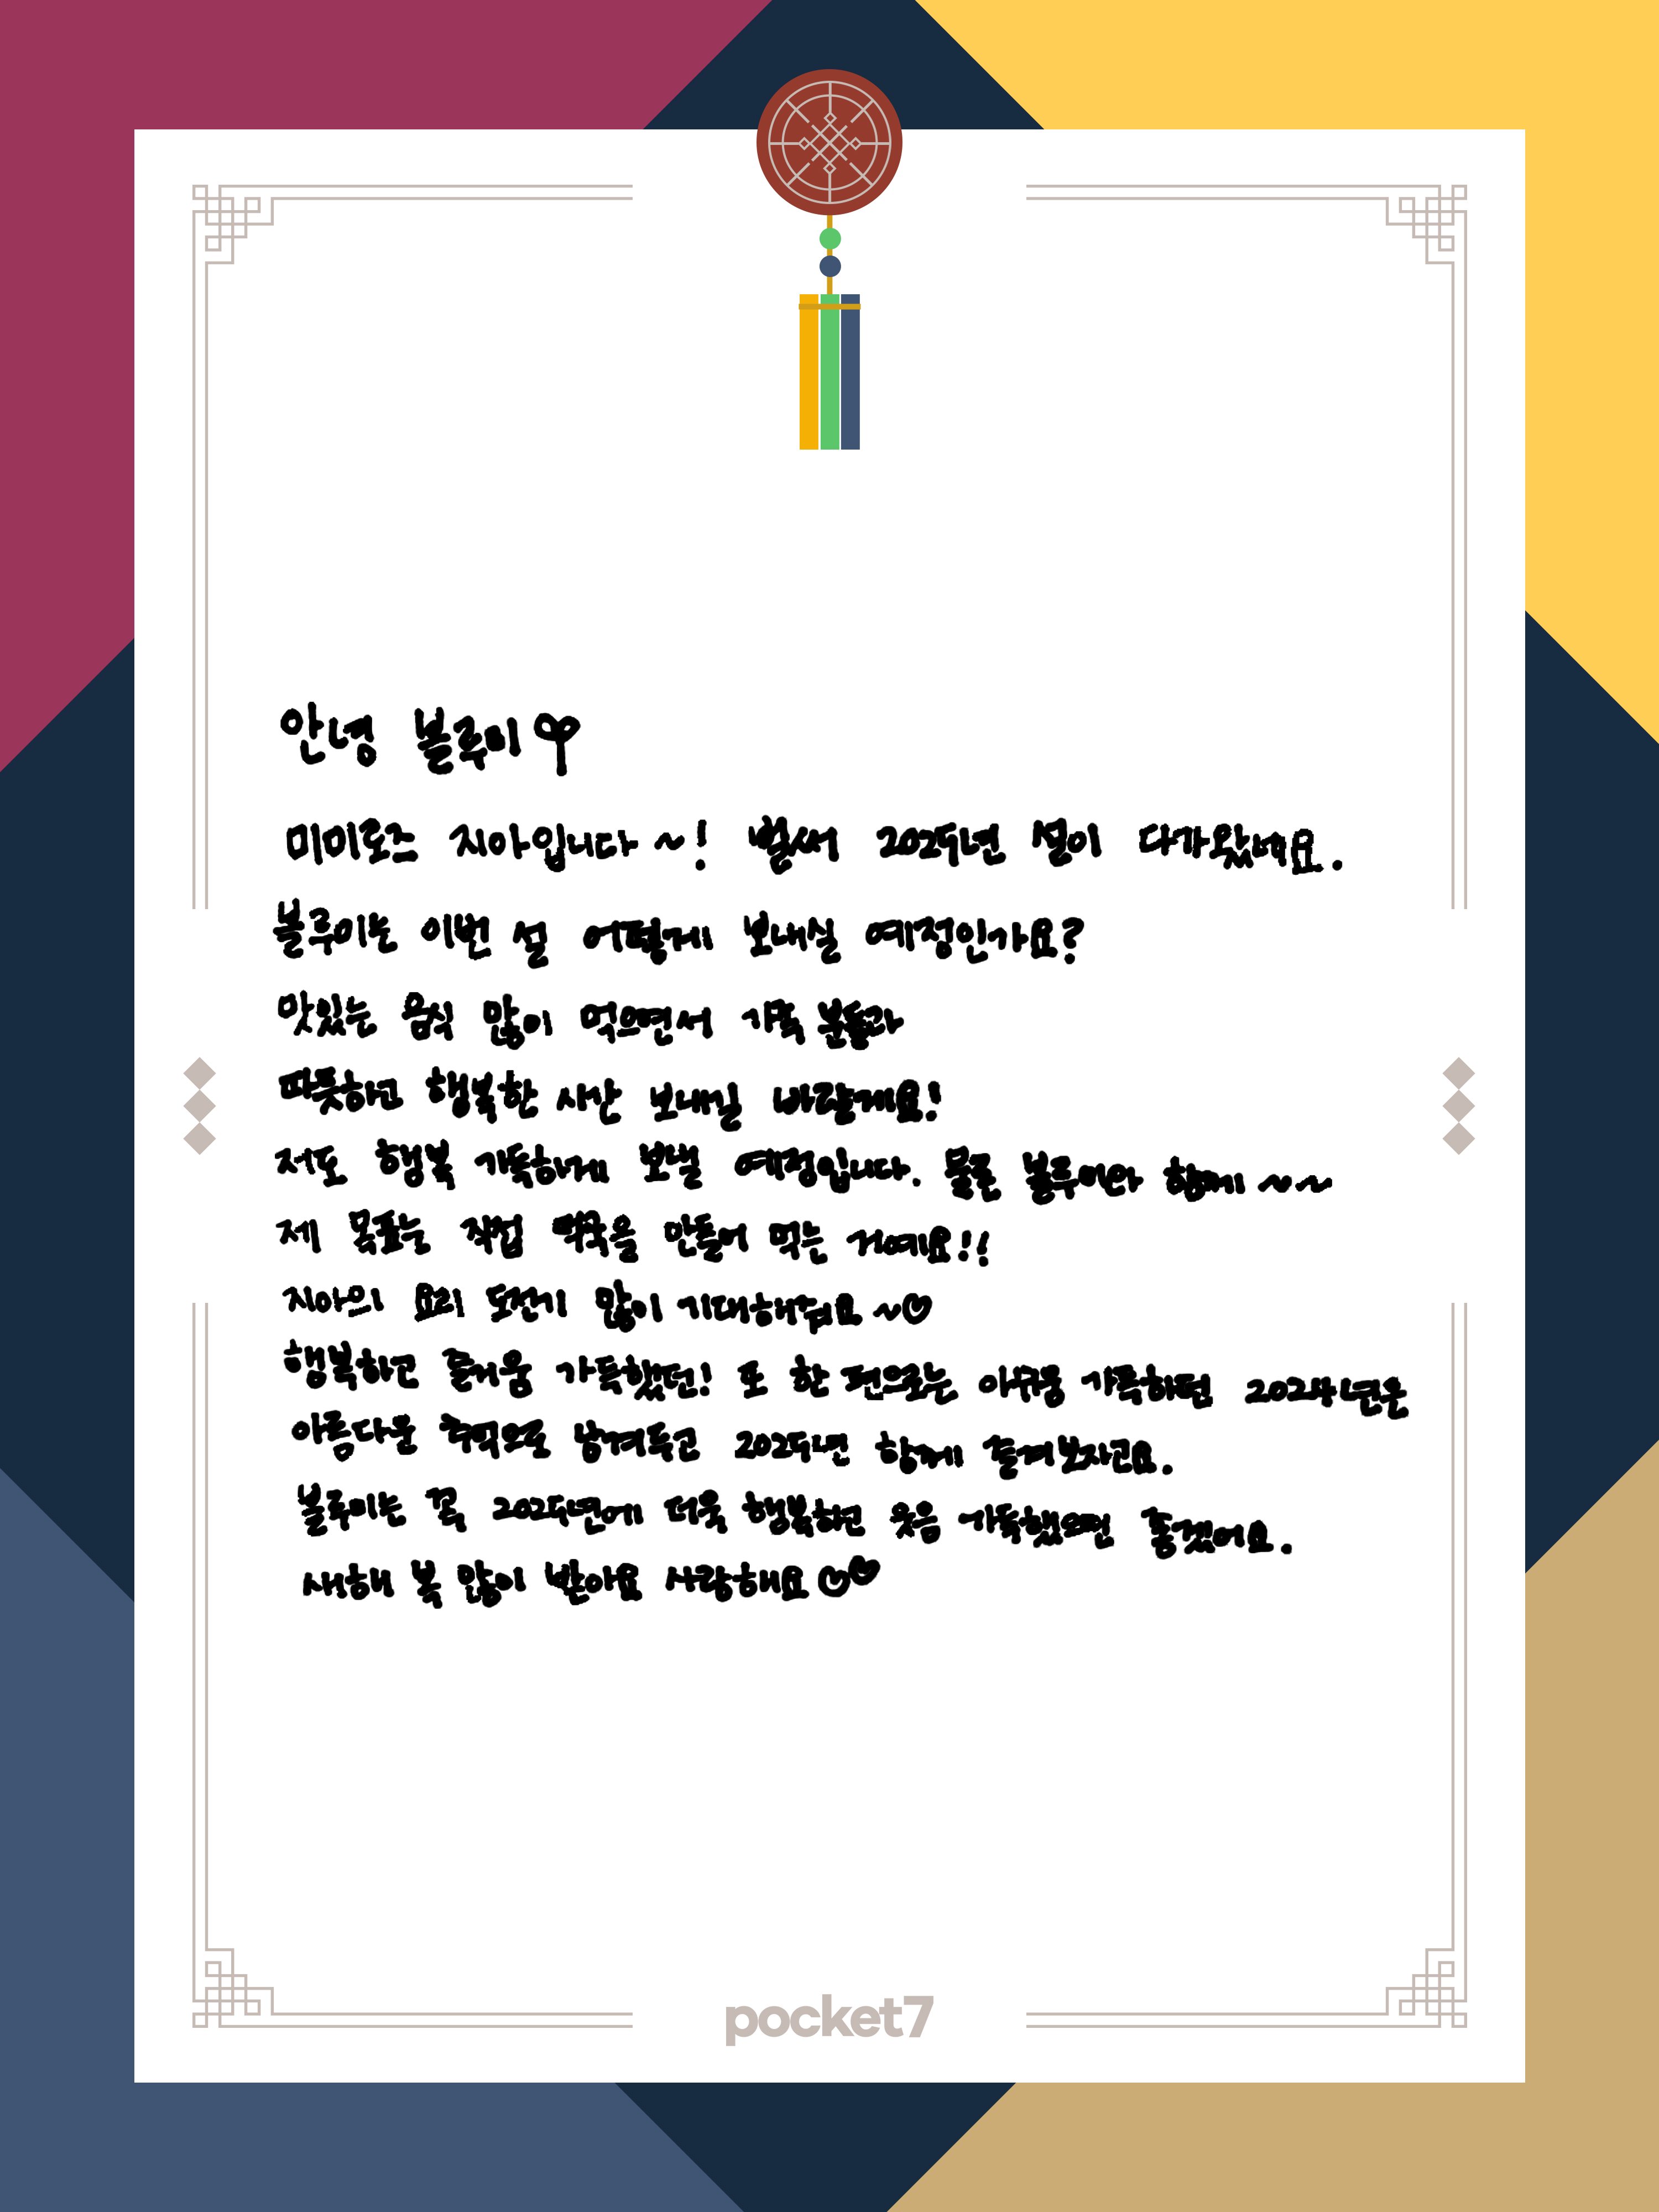 안녕 블루미♡
미미로즈 지아입니다~! 벌써 2025년 설이 다가왔네요.
블루미는 이번 설 어떻게 보내실 예정인가요?
맛있는 음식 많이 먹으면서 가족 분들과
따뜻하고 행복한 시간 보내길 바랄게요!
저도 행복 가득하게 보낼 예정입니다. 물론 블루미와 함께~~
제 목표는 직접 떡국을 만들어 먹는 거예요!!
지아의 요리 도전기 많이 기대해주세요~♡
행복하고 즐거움 가득했던! 또 한 편으로는 아쉬움 가득하던 2024년은
아름다운 추억으로 남겨두고 2025년 함께 즐겨보자구요.
블루미는 꼭 2025년에 더욱 행복하고 웃음 가득했으면 좋겠어요.
새해 복 많이 받아요 사랑해요♡♡
pocket7